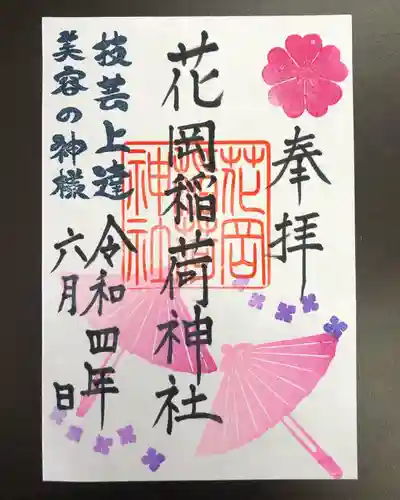 奉拝
花岡稲荷神社
花岡
稲荷
神社
令和四年
六月 日
技芸上達
美容の神様